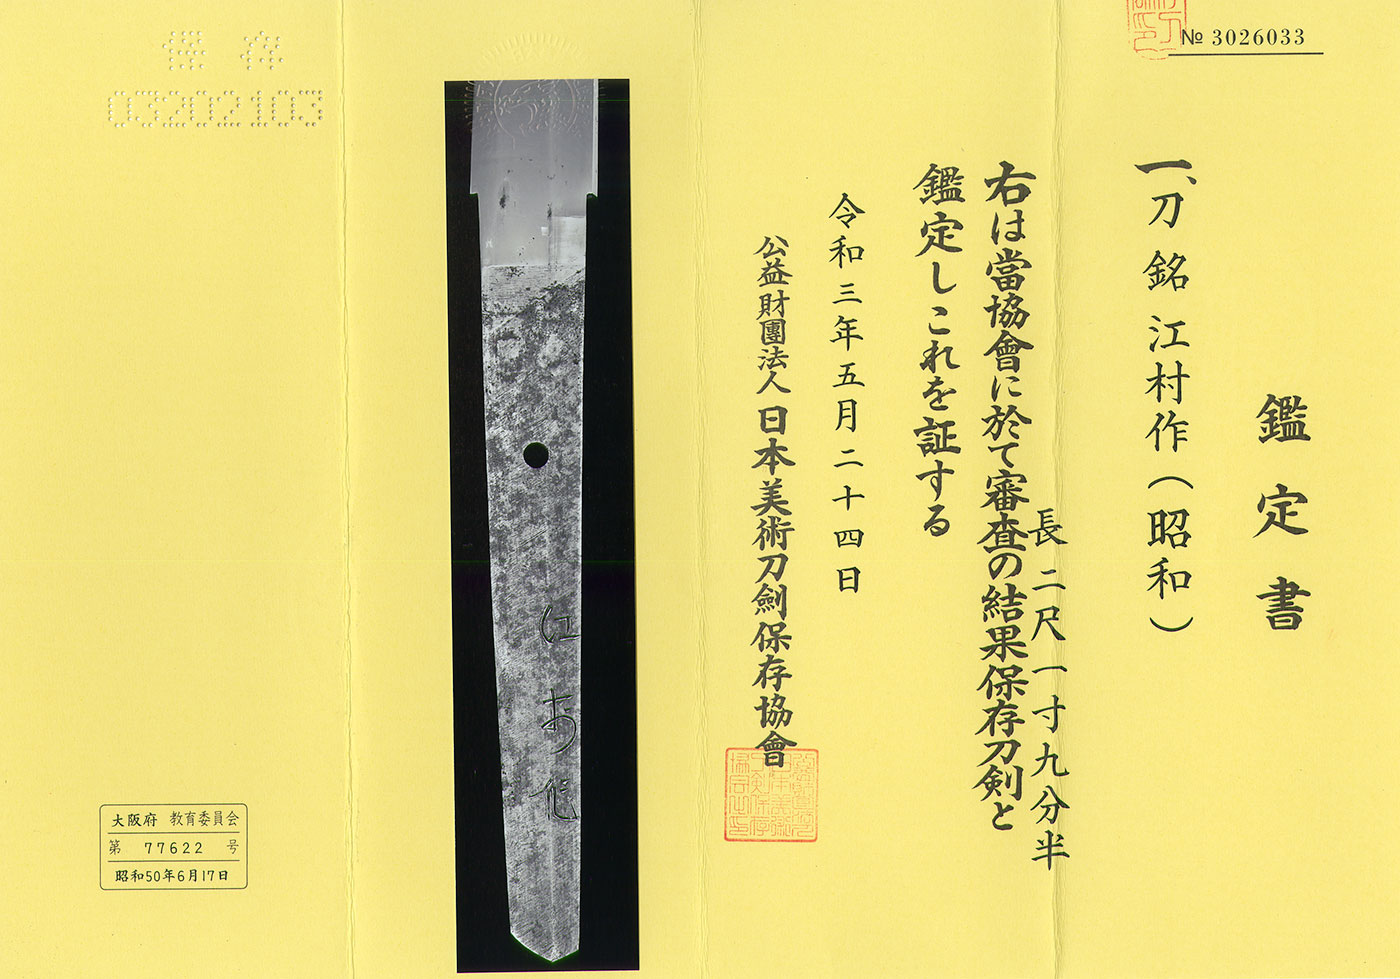 № 3026033
鑑定書
一、刀 銘 江村作（昭和）
長 二尺一寸九分半
右は當協會に於て審査の結果保存刀剣と
鑑定しこれを証する
令和三年五月二十四日
公益財團法人 日本美術刀劍保存協會
江村作
保存
03202103
大阪府 教育委員会
第 77622 号
昭和50年6月17日